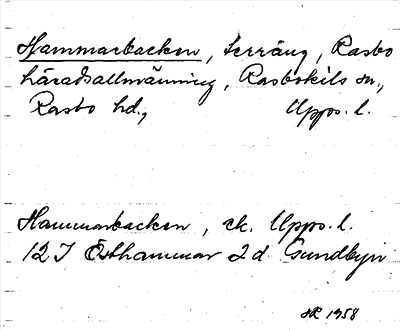 Hammarbacken, terräng, Rasbo
häradsallmänning, Rasbokils sn.,
Rasbo hd., Upps. l.
Hammarbacken, ek. Upps. l.
12 I Östhammar 2 d Sundbyn
1958